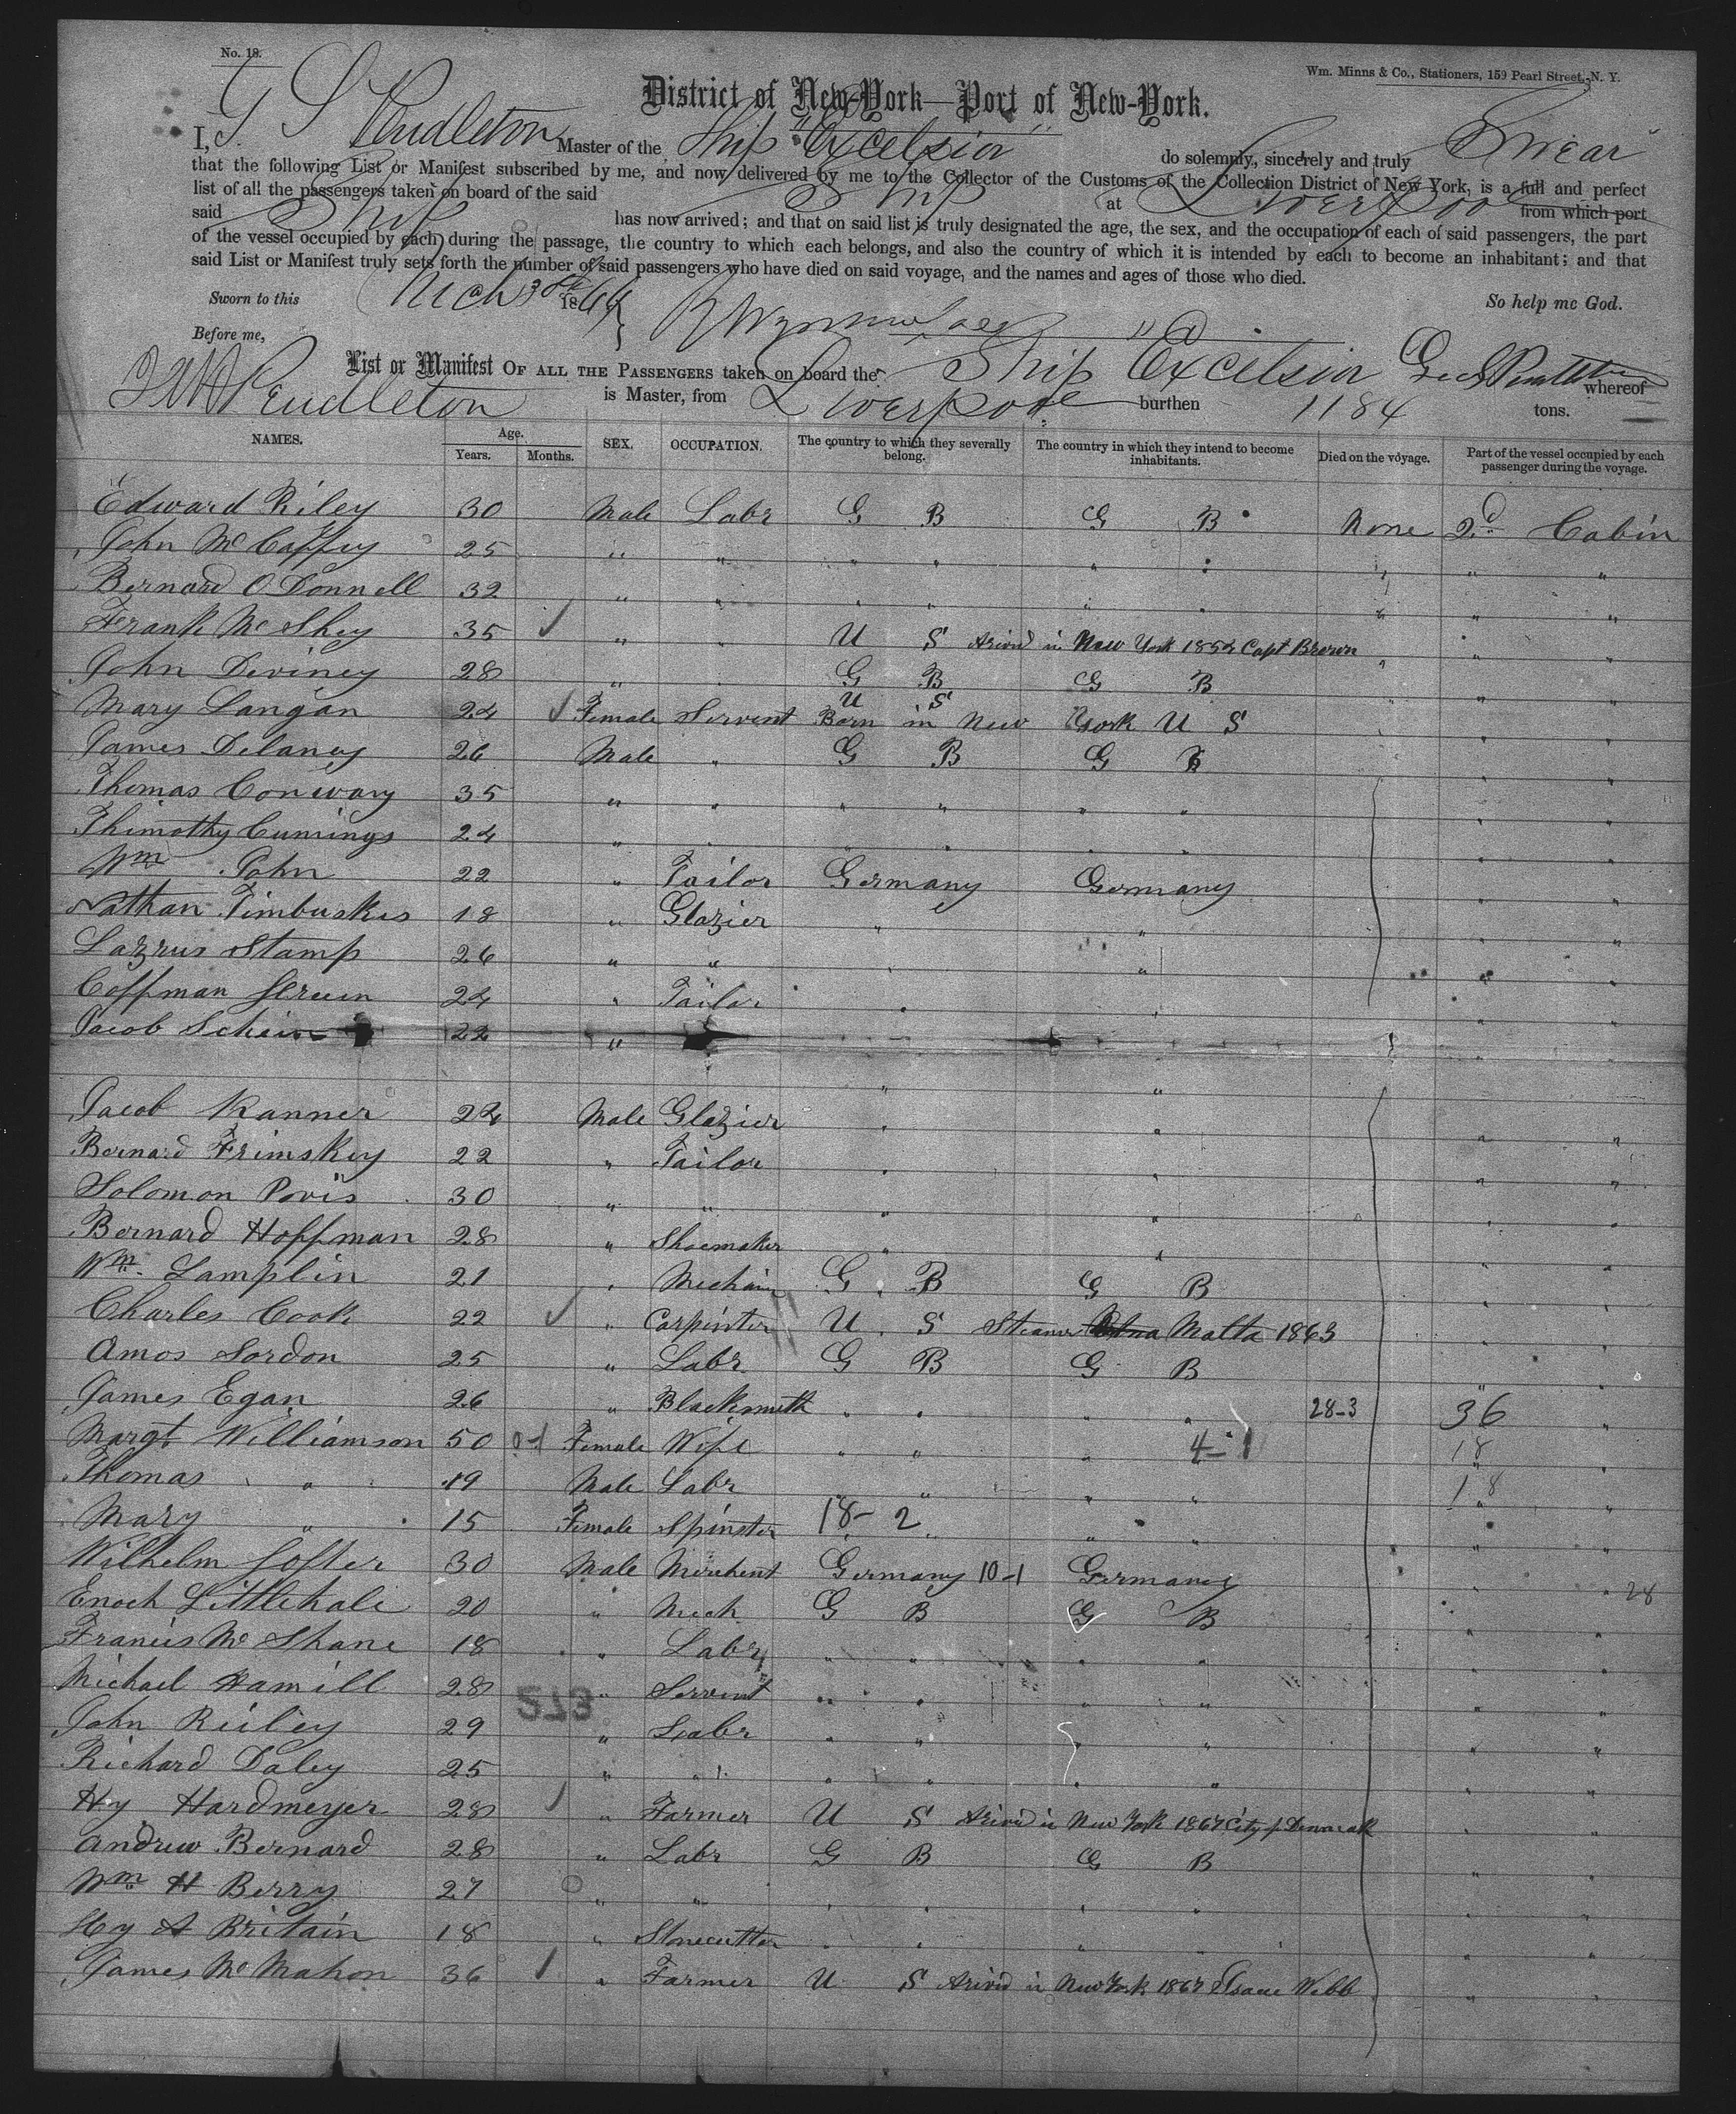 No. 18.
Wm. Minns & Co., Stationers, 159 Pearl Street, N. Y.
District of New-York—Port of New-York.
I, G. S. Pendleton Master of the Ship "Excelsior" do solemnly, sincerely and truly Swear
that the following List or Manifest subscribed by me, and now delivered by me to the Collector of the Customs of the Collection District of New York, is a full and perfect
list of all the passengers taken on board of the said Ship at Liverpool from which port
said Ship has now arrived; and that on said list is truly designated the age, the sex, and the occupation of each of said passengers, the part
of the vessel occupied by each during the passage, the country to which each belongs, and also the country of which it is intended by each to become an inhabitant; and that
said List or Manifest truly sets forth the number of said passengers who have died on said voyage, and the names and ages of those who died.
Sworn to this 1866 So help me God.
Before me,
List or Manifest OF ALL THE PASSENGERS taken on board the Ship Excelsior whereof
Pendleton is Master, from Liverpool burthen 1184 tons.
NAMES. Age. Years. Months. SEX. OCCUPATION. The country to which they severally belong. The country in which they intend to become inhabitants. Died on the voyage. Part of the vessel occupied by each passenger during the voyage.
Edward Riley 30 Male Labr G B G B None 2d Cabin
John McCaffry 25 " " " " " " " " "
Bernard O Donnell 32 " " " " " " " " "
Frank McShey 35 ✓ " " U S Arived in New York 1854 Capt Brown " " "
John Deviney 28 " " G B G B " " "
Mary Langan 24 ✓ Female Servent U S Born in New York U S " " "
James Delaney 26 Male " G B G B " "
Thomas Conway 35 " " " " " " " "
Thimothy Cumings 24 " " " " " " " "
Wm John 22 " Tailor Germany Germany " "
Nathan Timbuskis 18 " Glazier " " " "
Lazrus Stamp 26 " " " " " "
Coffman 24 " Tailor " " " "
Jacob Schein 22 " " " " "
Jacob Kanner 24 Male Glazier " " " "
Bernard Frimskey 22 " Tailor " " " "
Solomon Poris 30 " " " " " "
Bernard Hoffman 28 " Shoemaker " " " "
Wm. Lamplin 21 " Mechain G B G B " "
Charles Cook 22 ✓ " Carpinter U S Steamer Malta 1863 " "
Amos Sordon 25 " Labr G B G B " "
James Egan 26 " Blacksmith " " " " 28-3 36
Margt Williamson 50 0-1 Female Wife " " " 4-1 18 "
Thomas " 19 Male Labr " " " " 18 "
Mary " 15 Female Spinster 18-2 " " " "
Wilhelm Softer 30 Male Merchent Germany 10-1 Germany " " 28
Enoch Littlehale 20 " Mech. G B G B " "
Francis McShane 18 " Labr " " " " " "
Michael Hamill 28 " Servent " " " " " "
573
John Reiley 29 " Labr " " " " " "
Richard Daley 25 " " " " " " " "
Hy Hardmeyer 28 ✓ " Farmer U S Arived in New York 1864 City of " "
Andrew Bernard 28 " Labr G B G B " "
Wm H Berry 27 " " " " " " " "
Hy A Britain 18 " Stonecutter " " " " " "
James McMahon 36 ✓ " Farmer U S Arived in New York 1864 Isaac Webb " "